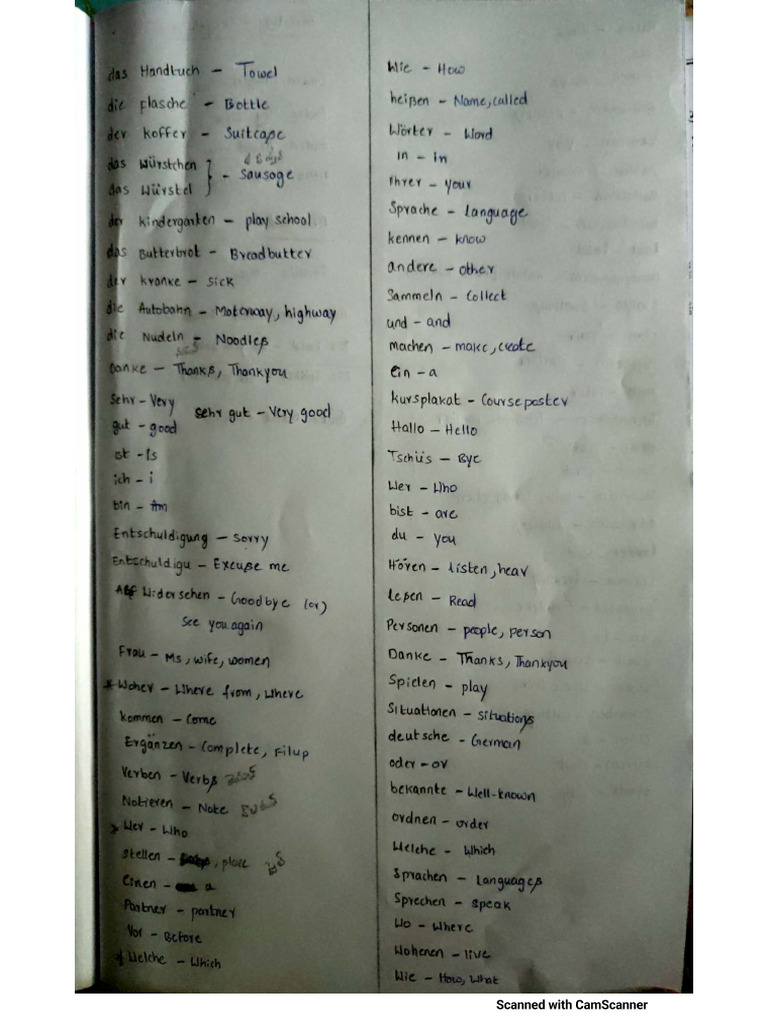 das Handtuch - Towel
die flasche - Bottle
der koffer - Suitcase
das Würstchen
das Würstel } - Sausoge
der kindergarten - play school
das Butterbrot - Breadbutter
der kranke - sick
die Autobahn - Moterway, highway
die Nudeln - Noodles
Danke - Thanks, Thankyou
Sehr - Very
gut - good
sehr gut - Very good
ist - Is
ich - i
bin - Am
Entschuldigung - Sorry
Entschuldigu - Excuse me
Widersehen - Goodbye (or)
See you again
Frau - Ms, wife, women
* Woher - Where from, where
kommen - Come
Ergänzen - Complete, Filup
Verben - Verbs
Notieren - Note
Wer - Who
stellen - , place
Einen - a
Partner - partner
Vor - Before
* Welche - Which
Wie - How
heißen - Name, called
Wörter - Word
in - in
Ihrer - your
Sprache - Language
kennen - know
andere - other
Sammeln - Collect
und - and
machen - make, create
Ein - a
kursplakat - Course poster
Hallo - Hello
Tschüs - Bye
Wer - Who
bist - are
du - you
Hören - listen, hear
Lesen - Read
Personen - people, person
Danke - Thanks, Thankyou
Spielen - play
Situationen - situations
deutsche - German
oder - or
bekannte - Well-known
ordnen - order
Welche - Which
Sprachen - Languages
Sprechen - speak
Wo - Where
Wohenen - live
Wie - How, What
Scanned with CamScanner